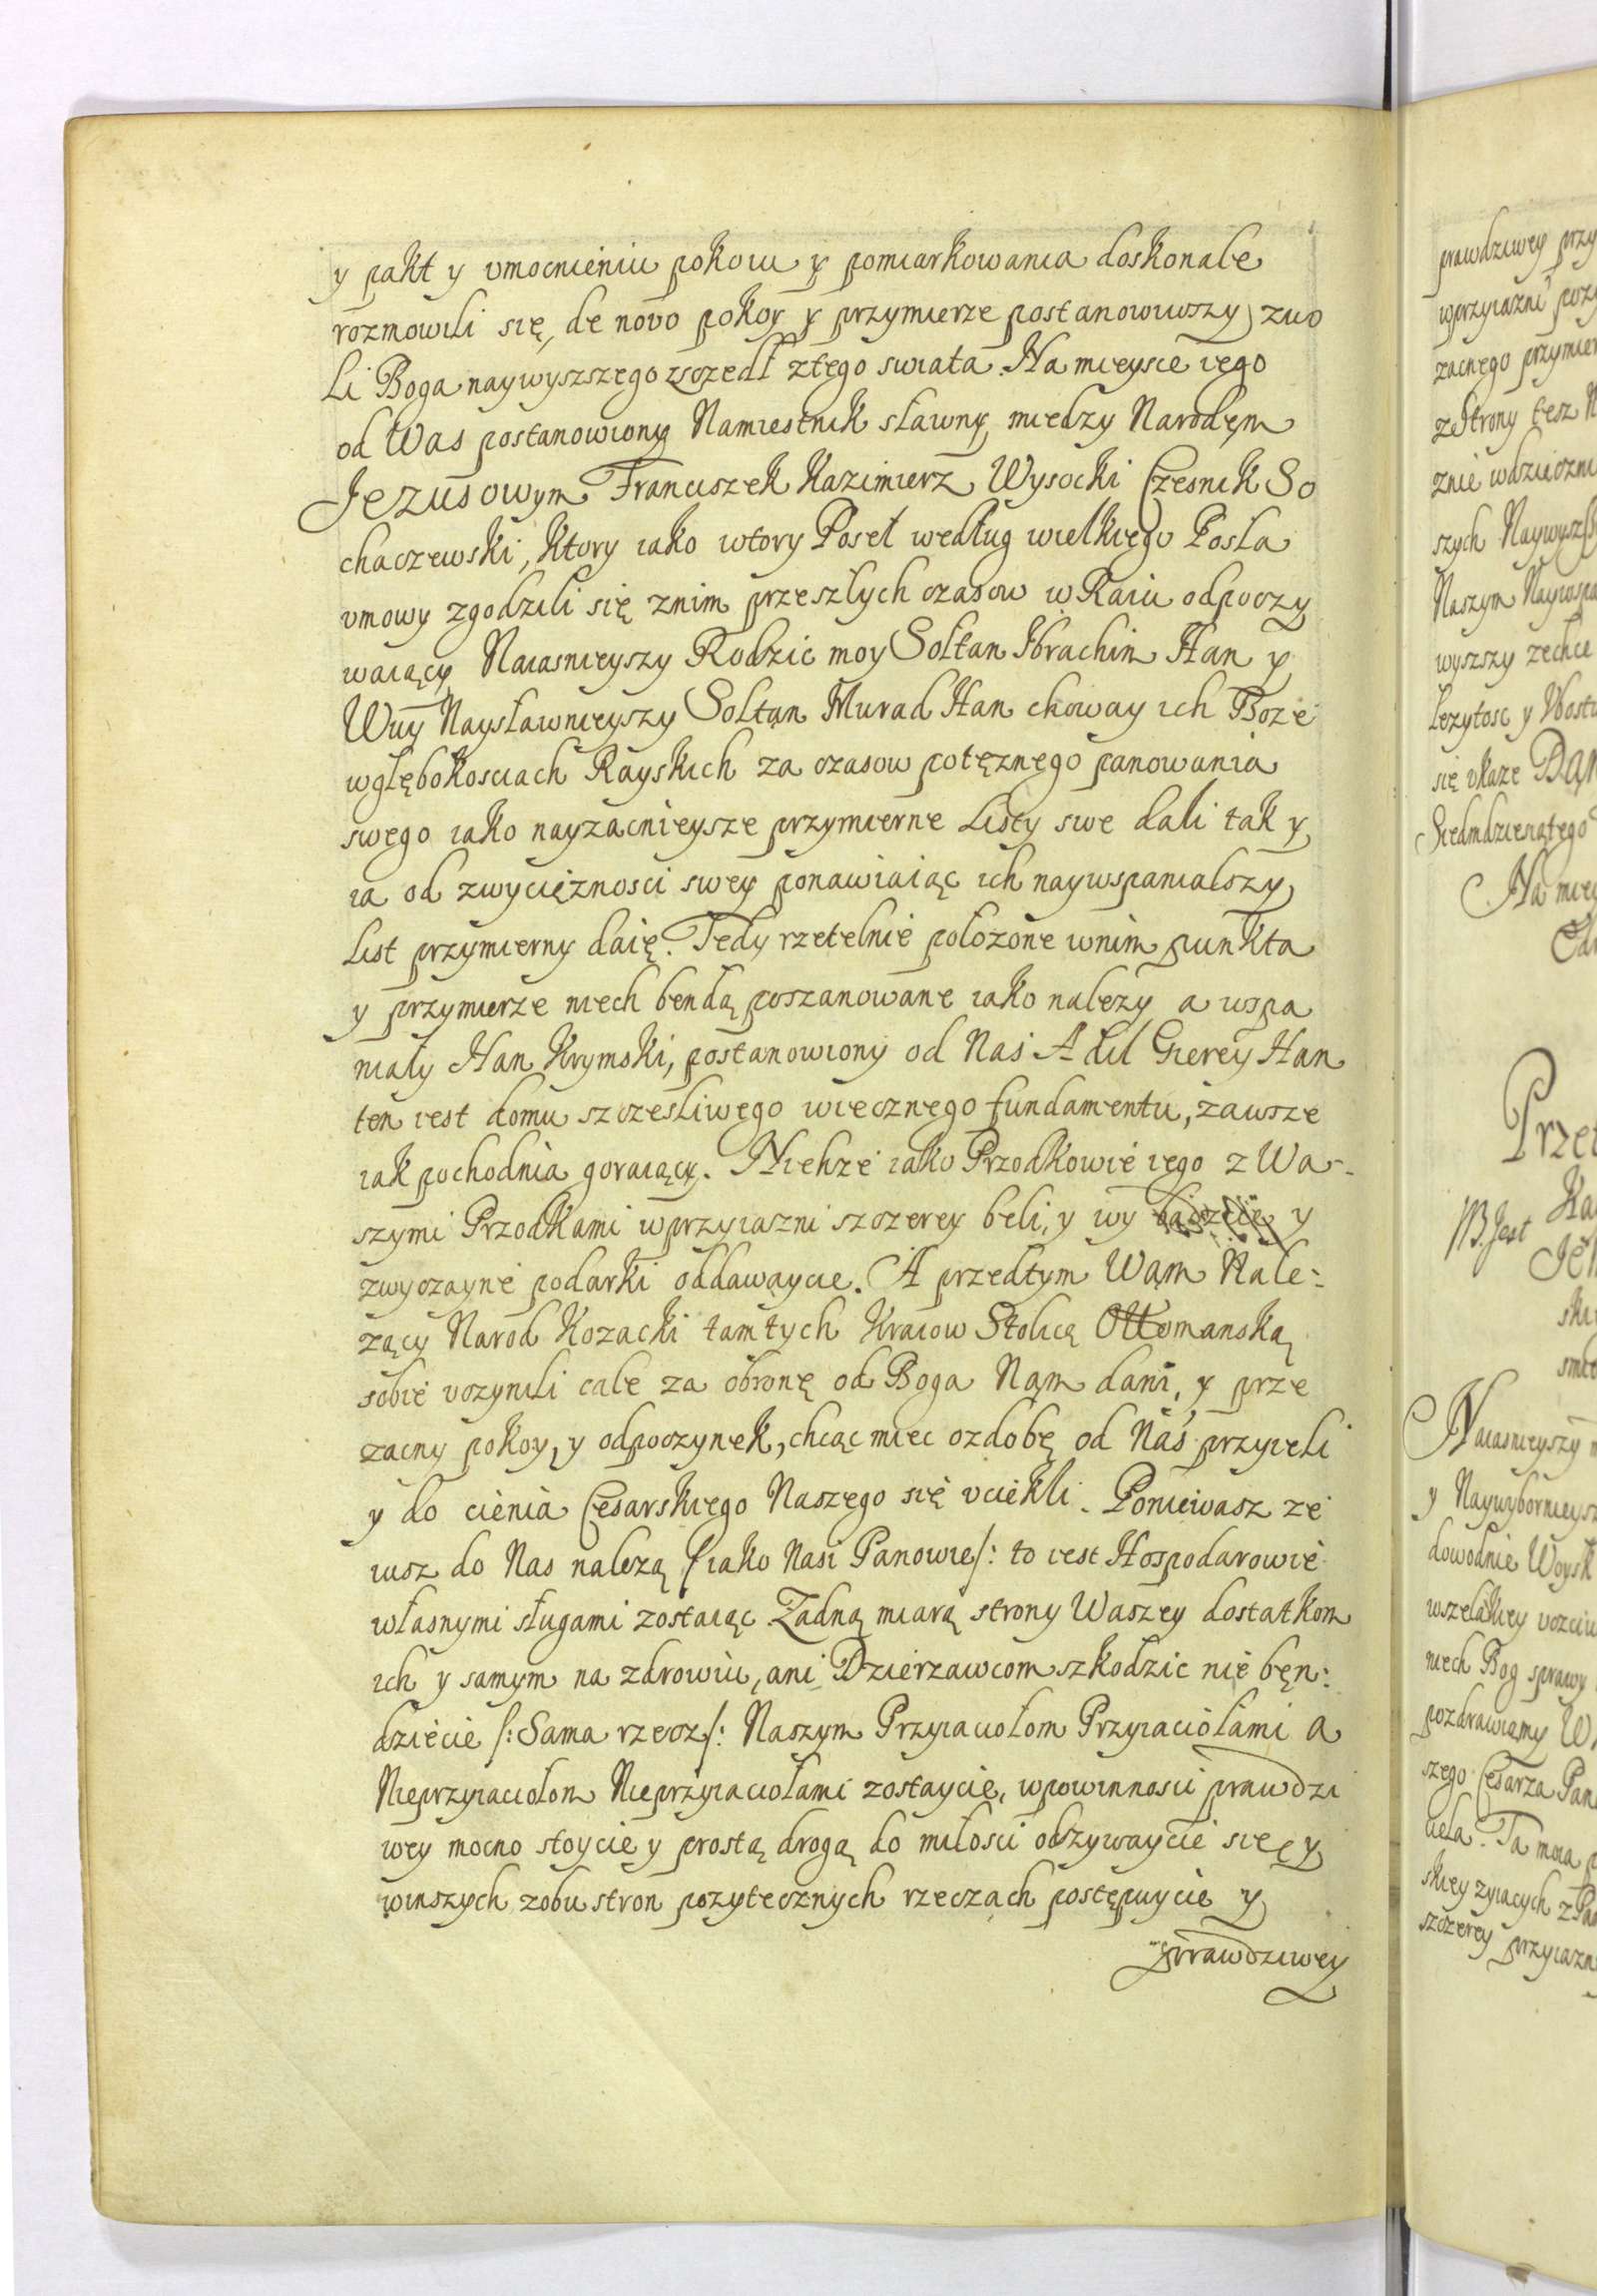 y pakt y vmocnieniu pokoiu y pomiarkowania doskonale
rozmowili się, de novo pokoy y przymierze postanowiwszy, zwo
li Boga naywyszszego zszedł ztego swiata. Na mieysce iego
od Was postanowiony Namiestnik sławny, miedzy Narodęm
Jezusowym Franciszek Kazimierz Wysocki Czesnik So
chaczewski, ktory iako wtory Poseł według wielkięgo Posła
vmowy zgodzili się znim przeszłych czasow w Raiu odpoczy
waiący Naiasnieyszy Rodzic moy Sołtan Ibrachim Han y
Wuy Naysławnieyszy Sołtan Murad Han choway ich Boze
wgłębokosciach Rayskich za czasow potęznego panowania
swego iako nayzacnieysze przymierne Listy swe dali tak y
ia od zwyciężnosci swey ponawiaiąc ich naywspanialszy
List przymierny daię. Tedy rzetelnie położone wnim punkta
y przymierze niech bendą poszanowane iako nalezy a wspa
niały Han Krymski, postanowiony od Nas Adil Gierey Han
ten iest domu szczesliwego wiecznego fundamentu, zawsze
iak pochodnia goraiący. Niehze iako Przodkowie iego z Wa-
szymi Przodkami wprzyiazni szczerey beli, y wy bądzcie y
zwyczayne podarki oddawaycie. A przedtym Wam Nale:
zący Narod Kozacki tamtych Kraiow Stolicą Ottomanską
sobie vczynili cale za obronę od Boga Nam dani, y prze
zacny pokoy, y odpoczynek, chcąc miec ozdobę od Nas przyieli
y do cienia Cesarskiego Naszego się vciekli. Poniewasz ze
iusz do Nas nalezą /iako Nasi Panowie/: to iest Hospodarowie
własnymi sługami zostaiąc Zadną miarą strony Waszey dostatkom
ich y samym na zdrowiu, ani Dzierzawcom szkodzic nie bęn:
dziecie /: Sama rzecz /: Naszym Przyiaciołom Przyiaciołami a
Nieprzyiaciołom Nieprzyiaciołami zostaycie, wpowinnosci prawdzi
wey mocno stoycie y prostą drogą do miłosci odzywaycie się, y
winszych zobu stron pozytecznych rzeczach postępuycie y
prawdziwey
prawdziwey przy
wprzyiazni pozy
zacnego przymier
zeStrony tesz N
znie wdzieczni
szych Naywyzs
Naszym Naywspa
wyszszy zechce
się vkaze
Siedmdziesiątego
Na miey
Przet
NB. Jest
Naiasnieyszy
y Naywybornieysz
dowodnie Woysk
niech Bog sprawy
pozdrawiamy W
szego Cesarza Pan
ciela. Ta moia p
skiey zyiących
szczerey przyiazn